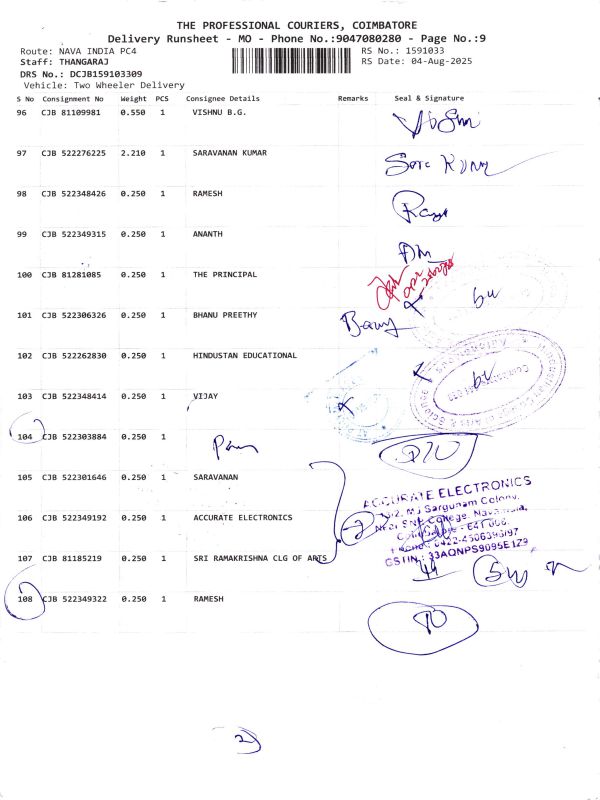 THE PROFESSIONAL COURIERS, COIMBATORE
Delivery Runsheet - MO - Phone No.:9047080280 - Page No.:9
Route: NAVA INDIA PC4 RS No.: 1591033
Staff: THANGARAJ RS Date: 04-Aug-2025
DRS No.: DCJB159103309
Vehicle: Two Wheeler Delivery
S No Consignment No Weight PCS Consignee Details Remarks Seal & Signature
96 CJB 81109981 0.550 1 VISHNU B.G.
97 CJB 522276225 2.210 1 SARAVANAN KUMAR
98 CJB 522348426 0.250 1 RAMESH
99 CJB 522349315 0.250 1 ANANTH
100 CJB 81281085 0.250 1 THE PRINCIPAL
101 CJB 522306326 0.250 1 BHANU PREETHY
102 CJB 522262830 0.250 1 HINDUSTAN EDUCATIONAL
103 CJB 522348414 0.250 1 VIJAY
104 CJB 522303884 0.250 1
105 CJB 522301646 0.250 1 SARAVANAN
ACCURATE ELECTRONICS
106 CJB 522349192 0.250 1 ACCURATE ELECTRONICS
107 CJB 81185219 0.250 1 SRI RAMAKRISHNA CLG OF ARTS
GSTIN : 33AQNPS9095E1Z9
108 CJB 522349322 0.250 1 RAMESH
2